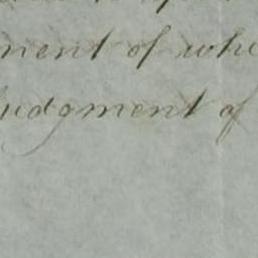 ment of whi
udgment of